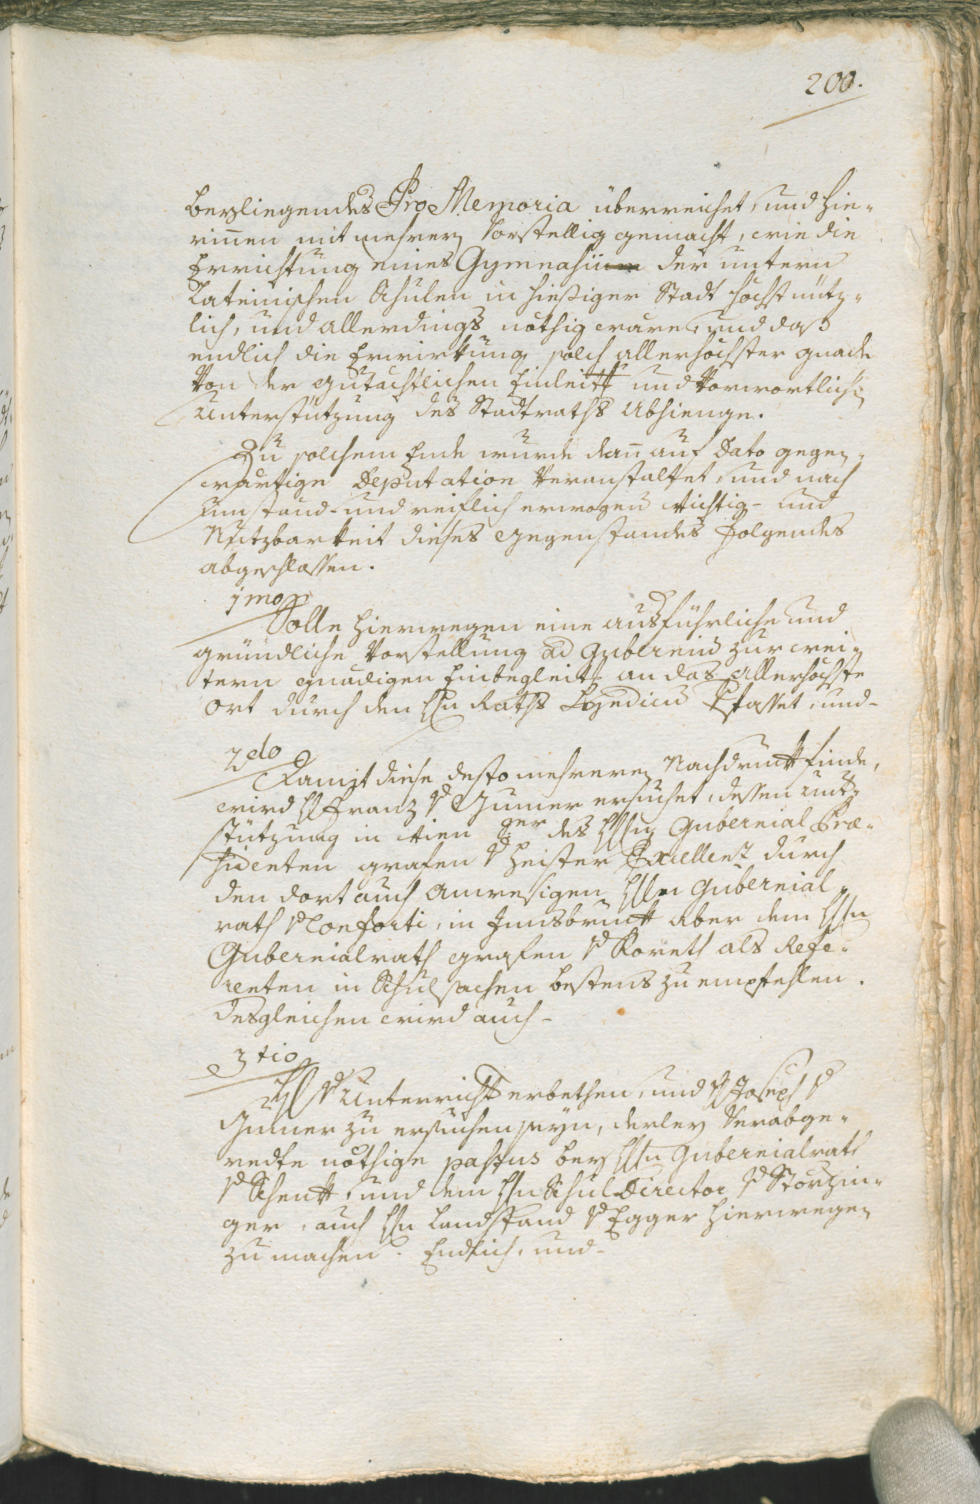 200.
beyliegendes Pro Memoria überreichet, und hie-
rinnen mit mehrern vorstellig gemacht, wie die
Errichtung eines Gymnasii der untern
Lateinischen Schulen in hiesiger Stadt höchst nutz-
lich, und allerdings nöthig wäre, und daß
endlich die Erwirkung solch allerhöchster Gnade
von der gutächtlichen Einleitt und vorwortlich
Unterstützung des Stadtraths abhienge.
Zu solchem Ende wurde dann auf Dato gegen-
wärtige Deputation veranstaltet, und nach
umständ- und reiflich erwogen Wichtig- und
Nutzbarkeit dieses Gegenstandes folgendes
abgeschlossen.
1mo
Solle hierwegen eine ausführliche und
gründliche Vorstellung ad Gubernium zur wei-
tern gnädigen Einbegleit an das allerhöchste
Ort durch den Hrn Raths verfasset, und-
2do
Damit diese desto mehreren Nachdruck finde,
wird H Franz v Gumer ersuchet, dessen unter
stützung in Wien des Hrn Gubernial Præ-
sidenten Grafen v Heister Excellenz durch
den dort auch anwesigen Hrn Gubernial
rath v Conforti, in Innsbruck aber dem Hrn
Gubernialrath Grafen v Koreth als Refe-
renten in Schulsachen bestens zu empfehlen.
Desgleichen wird auch-
3tio
H v Unterricht erbethen, und H Joseph v
Gumer zu ersuchen seyn, derley verabge-
redte nöthige passus bey Hrn Gubernialrath
v Schenk, und dem Hrn Schul Director v Störzin-
ger, auch Hrn Landstand v Egger hierwegen
zu machen. Endlich, und-